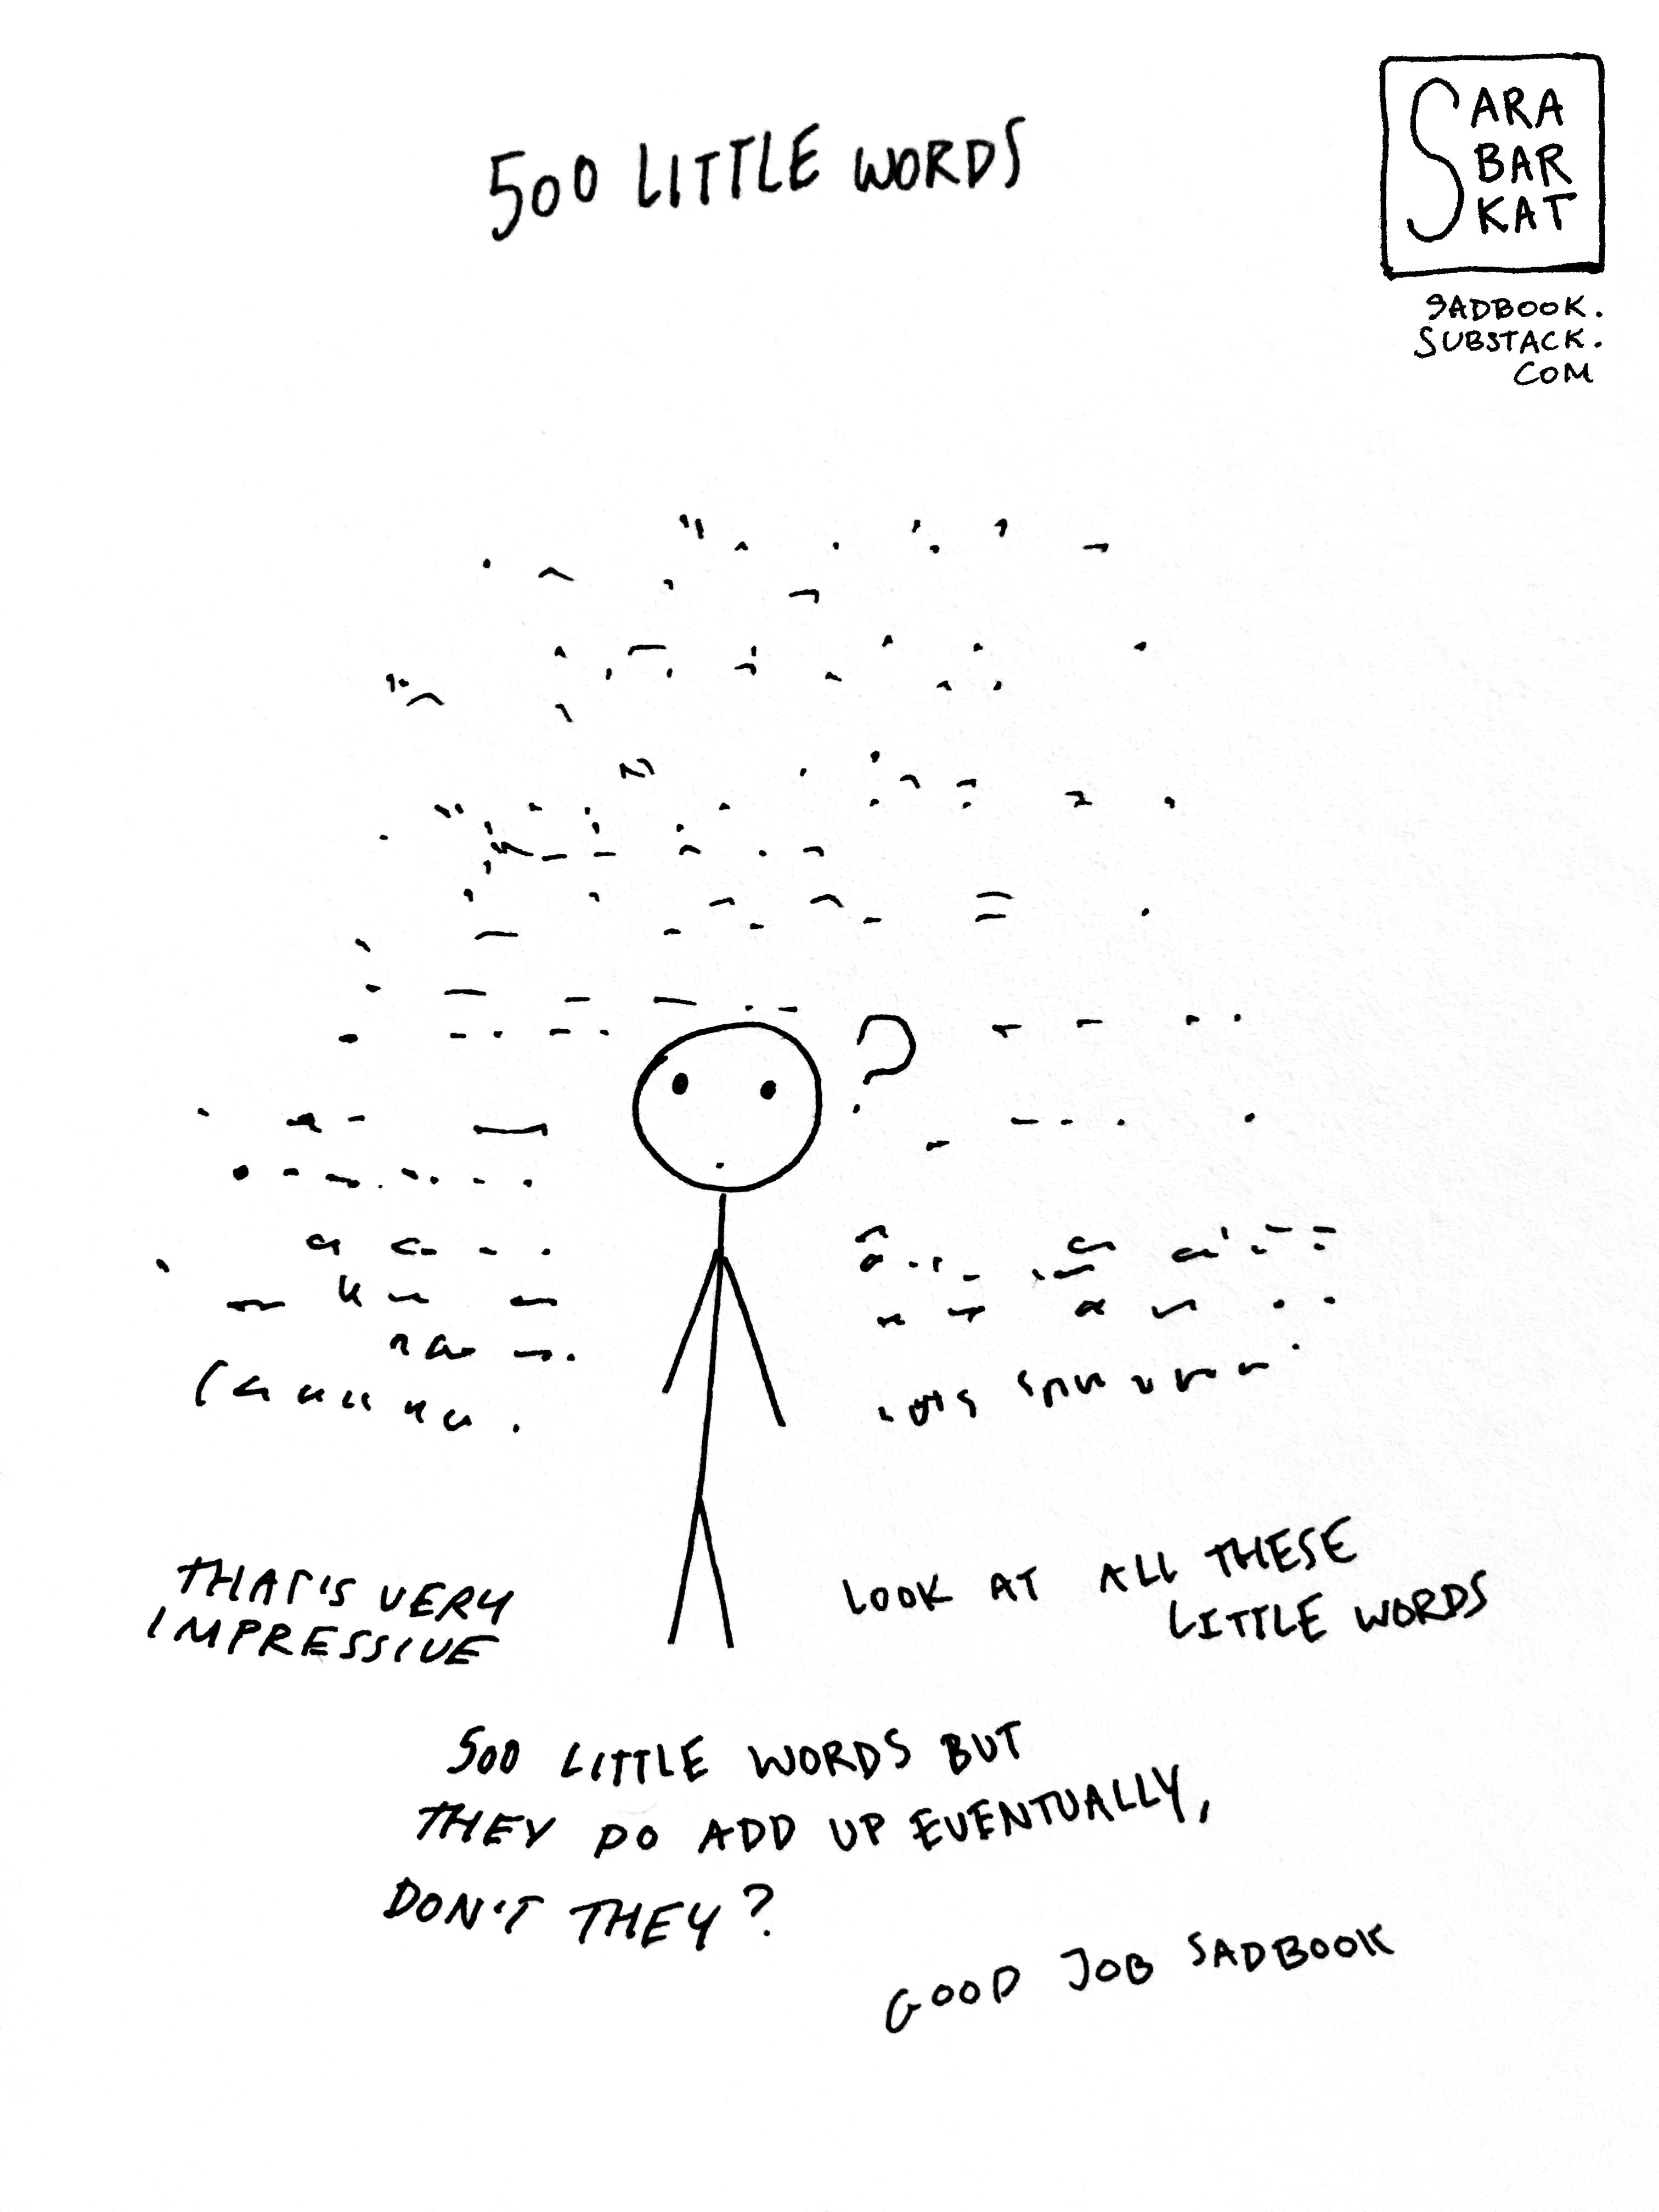 500 LITTLE WORDS
SARA
BAR
KAT
SADBOOK.
SUBSTACK.
COM
?
THAT'S VERY
IMPRESSIVE
LOOK AT ALL THESE
LITTLE WORDS
500 LITTLE WORDS BUT
THEY DO ADD UP EVENTUALLY,
DON'T THEY?
GOOD JOB SADBOOK